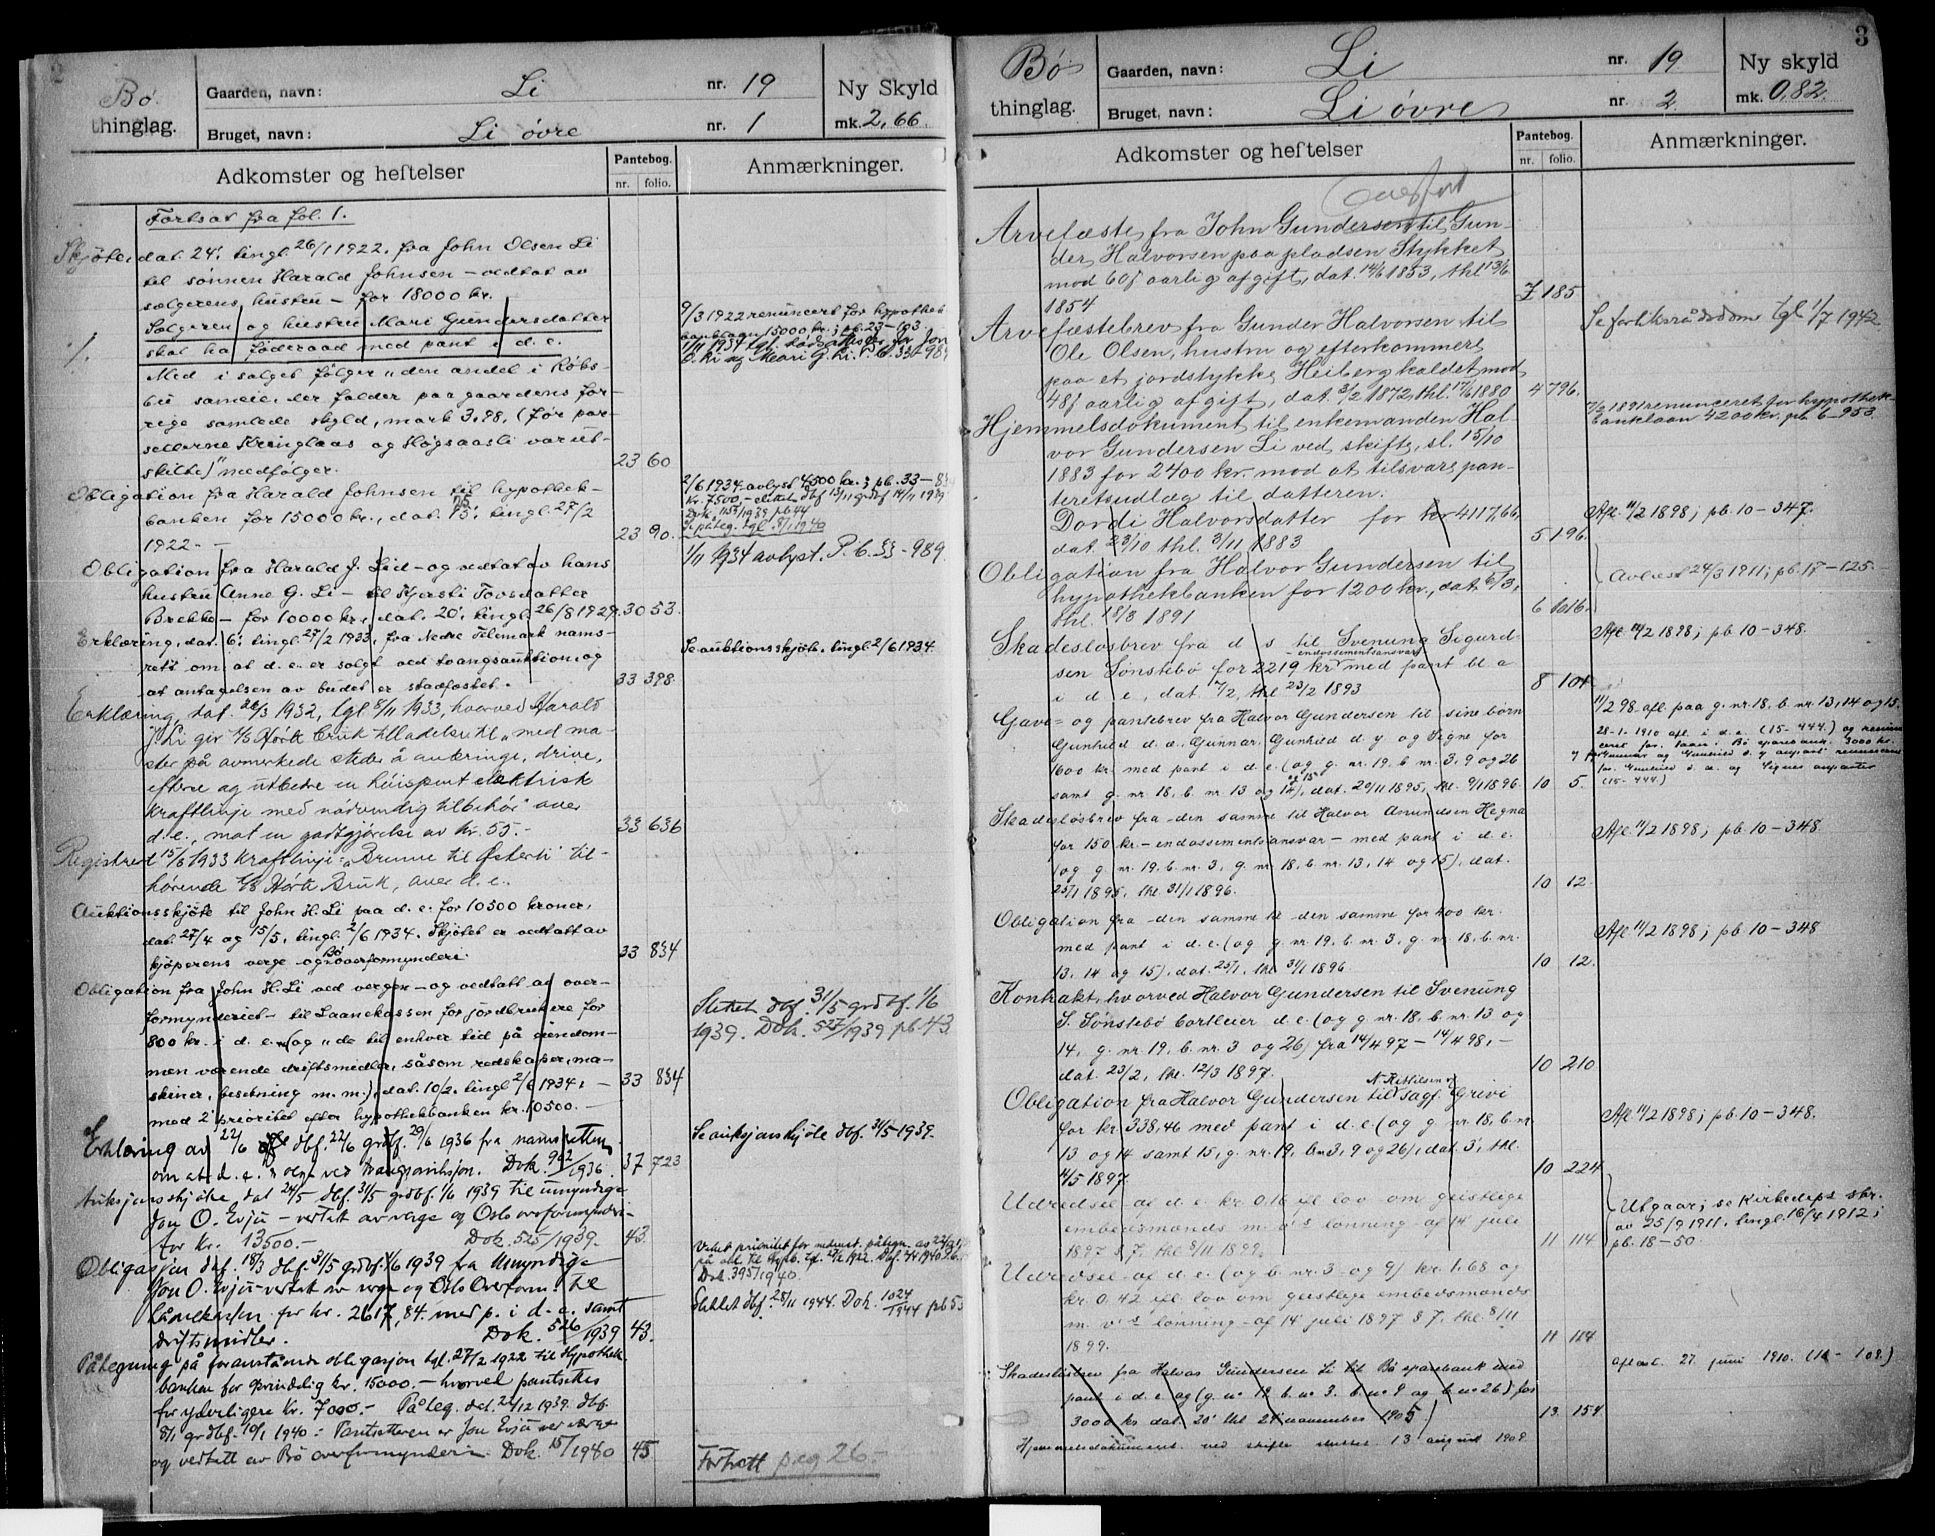 2
Bø thinglag.
Gaarden, navn: Li nr. 19
Bruget, navn: Li øvre nr. 1
Ny Skyld mk. 2,66.
Adkomster og heftelser
Pantebog. nr. folio.
Anmærkninger.
Fortsat fra fol. 1.
Skjøte, dat. 24', tingl. 26/1 1922, fra John Olsen Li
til sønnen Harald Johnsen – vedtat av
sælgerens hustru – for 18000 kr.
Sælgeren og hustru Mari Gundersdatter
skal ha føderaad med pant i d. e.
Med i salget følger "den andel i Røbs-
bu sameie, der falder paa gaardens for-
rige samlede skyld, mark 3.98, (før par-
sellerne Kringlaas og Høgsaasli var ut-
skilte)" medfølger. 23 60
9/3 1922 renuncert for hypothek-
banklaan 15000 kr.; pb. 23–103
1/11 1934 tgl. dødsattester for Jon
O. Li og Mari G. Li. P.b. 33–989
Obligation fra Harald Johnsen til hypothek-
banken for 15000 kr., dat. 15', tingl. 27/2
1922. – 23 90.
2/6 1934 avlyst 4500 kr.; pb. 33–834
Kr. 7500,– slettet dbf 13/11 grdbf 14/11 1939
Dok. 1157/1939 pb 44
Se påteg. tgl. 8/1 1940
Obligation fra Harald J. Lid – og vedtat av hans
hustru Anne G. Li – til Kjersti Tovsdatter
Brekke – for 10000 kr., dat. 20', tingl. 26/8 1929. 30 53.
1/11 1934 avlyst. P. b. 33–989
Erklæring, dat. 6', tingl. 27/2 1933, fra Nedre Telemark nams-
rett om at d. e. er solgt ved tvangsauktion, og
at antagelsen av budet er stadfæstet. 33 398.
Se auktionsskjøte, tingl. 2/6 1934.
Erklæring, dat. 26/3 1932, tgl. 8/11 1933, hvorved Harald
J. Li gir A/S Hørte Bruk tilladelse til "med ma-
ster på avmerkede steder å anbringe, drive,
efterse og utbedre en høispent elektrisk
kraftlinje med nødvendig tilbehør" over
d. e., mot en godtgjørelse av kr. 55.– 33 636
Registrert 15/6 1933 kraftlinje "Brume til Østerli" til-
hørende A/S Hørte Bruk, over d. e.
Auktionsskjøte til John H. Li paa d. e. for 10500 kroner,
dat. 27/4 og 15/5, tingl. 2/6 1934. Skjøtet er vedtatt av
kjøperens verge og Bø overformynderi. 33 834
Obligation fra John H. Li ved verger – og vedtatt av over-
formynderiet – til Laanekassen for jordbrukere for
800 kr. i d. e. (og "de til enhver tid på eiendom-
men værende driftsmidler, såsom redskaper, ma-
skiner, besetning m. m.), dat. 10/2, tingl. 2/6 1934, – 33 834
med 2' prioritet efter hypothekbanken kr. 10500. –
Slettet dbf. 31/5 grdbf. 1/6
1939. Dok. 527/1939 pb. 43.
Erklæring av 22/6 dbf. 22/6 grdbf. 29/6 1936 fra namsretten
om at d. e. er solgt ved tvangsauksjon. Dok. 962/1936. 37 723
Se auksjonsskjøte dbf. 31/5-1939.
Auksjonsskjøte dat 24/5 dbf. 31/5 grdbf. 1/6 1939 til umyndige
Jon O. Evju – vertet av verge og Oslo overformynderi –
for kr. 13500.– Dok. 525/1939. 43.
Obligasjon dat. 18/3 dbf. 31/5 grdbf. 1/6 1939 fra umyndige
Jon O. Evju – vertet av verge og Oslo Overform. til
Lånekassen for kr. 2617,84 med p. i d. e. samt
driftsmidler. Dok. 526/1939 43.
Dok. 395/1940.
Slettet dbf. 28/11 1944. Dok. 1024/1944 pb 53
Påtegning på foranstående obligasjon tgl. 27/2 1922 til Hypothek-
banken for oprindelig kr. 15000.– hvorved pantsettes
for yderligere kr. 7000.– Påteg. dat. 22/12 1939. dbf.
8/1 grdbf. 10/1 1940: Pantsetteren er Jon Evju ved verge
og vedtatt av Bø overformynderi. Dok. 15/1940 45
Fortsatt pag 26.–
3
Bø thinglag.
Gaarden, navn: Li nr. 19
Bruget, navn: Li øvre nr. 2
Ny skyld mk. 0,82.
Adkomster og heftelser
Pantebog. nr. folio.
Anmærkninger.
Overført
Arvefæste fra John Gundersen til Gun-
der Halvorsen paa pladsen Stykket
mod 60ſ aarlig afgift, dat. 14/6 1853, thl. 13/6
1854 Z 185
Arvefæstebrev fra Gunder Halvorsen til
Ole Olsen, hustru og efterkommere
paa et jordstykke, Heiberg kaldet, mod
48ſ aarlig afgift, dat. 3/2 1872, thl. 17/6 1880 4 796.
Se forliksrådsdom tgl. 1/7 1942
Hjemmelsdokument til enkemanden Hal-
vor Gundersen Li ved skifte, sl. 15/10
1883 for 2400 kr. mod at tilsvare pan-
teretsudlæg til datteren.
7/2 1891 renunceret for hypothek-
banklaan 4200 kr. pb. 6–953.
Dordi Halvorsdatter for kr 4117,66,
dat. 23/10 thl. 3/11 1883 5 196.
Afl. 11/2 1898; pb. 10–347.
Obligation fra Halvor Gundersen til
hypothekbanken for 1200 kr., dat. 6/3,
thl. 18/3 1891 6 1016.
Avlæst 24/3 1911; pb. 17–125.
Skadesløsbrev fra d s til Svenung Sigurd-
sen Sønstebø for 2219 kr – endossementsansvar – med pant bl a
i d e, dat. 7/2, thl 23/2 1893 8 101
Afl. 11/2 1898; pb. 10–348.
Gave- og pantebrev fra Halvor Gundersen til sine børn
Gunhild d. æ. Gunnar, Gunhild d. y og Signe for
1600 kr. med pant i d. e. (og g. nr. 19. b. nr. 3, 9 og 26
samt g. nr. 18, b. nr. 13 og 14 og 15), dat. 29/11 1895, thl. 9/1 1896 10 5.
11/2 98 afl. paa g. nr. 18, b. nr. 13, 14 og 15.
28-1-1910 afl. i d. e. (15-444.) og renun-
ceret for laan i Bø sparebank 3000 kr.
for Gunnar og Gunhild d. y anpart renunceret
for Gunhild d. æ. og Signes anparter
(15-444.)
Skadesløsbrev fra den samme til Halvor Amundsen Hegna
for 150 kr. – endossementsansvar – med pant i d. e.
(og g. nr. 19, b. nr. 3, g. nr. 18, b. nr. 13, 14 og 15), dat.
25/1 1895, thl. 31/1 1896. 10 12.
Afl. 11/2 1898; pb. 10–348
Obligation fra den samme til den samme for 400 kr.
med pant i d. e. (og g. nr. 19, b. nr. 3, g. nr. 18, b. nr.
13, 14 og 15), dat. 25/1, thl. 31/1 1896 10 12.
Afl. 11/2 1898; pb 10–348
Kontrakt, hvorved Halvor Gundersen til Svenung
S. Sønstebø bortleier d. e. (og g. nr. 18, b. nr. 13 og
14, g. nr. 19, b. nr. 3 og 26) fra 14/4 97 – 14/4 98, –
dat. 23/2, thl. 12/3 1897. 10 210
Obligation fra Halvor Gundersen til N. Kittilsen og sagf. Grivi
for kr. 338,46 med pant i d. e. (og g nr. 18, b. nr
13 og 14 samt 15, g. nr. 19, b. nr. 3, 9 og 26), dat. 3', thl.
11/5 1897. 10 224
Afl. 11/2 1898; pb. 10–348.
Udredsel af d. e kr. 0.16 efl lov om geistlige
embedsmænds m. v's lønning af 14 juli
1897 § 7, thl 8/11 1899. 11 114
Utgaar; se Kirkedeps skr.
av 25/9 1911, tingl. 16/4 1912;
pb. 18–50.
Udredsel af d. e. (og b. nr. 3 og 9) kr. 1.68 og
kr. 0.42 efl lov om geistlige embedsmænds
m. v's lønning af 14 juli 1897 § 7, thl. 8/11
1899. 11 114
Skadesløsbrev fra Halvor Gundersen Li til Bø sparebank med
pant i d. e og (g. nr 19 b. nr 3. b. nr 9 og b. nr 26) for
3000 kr dat. 20' thl 21' november 1905 13 154
Aflæst. 27. juni 1910. (16–109.)
Hjemmelsdokument ved skifte sluttet 13 august 1909.